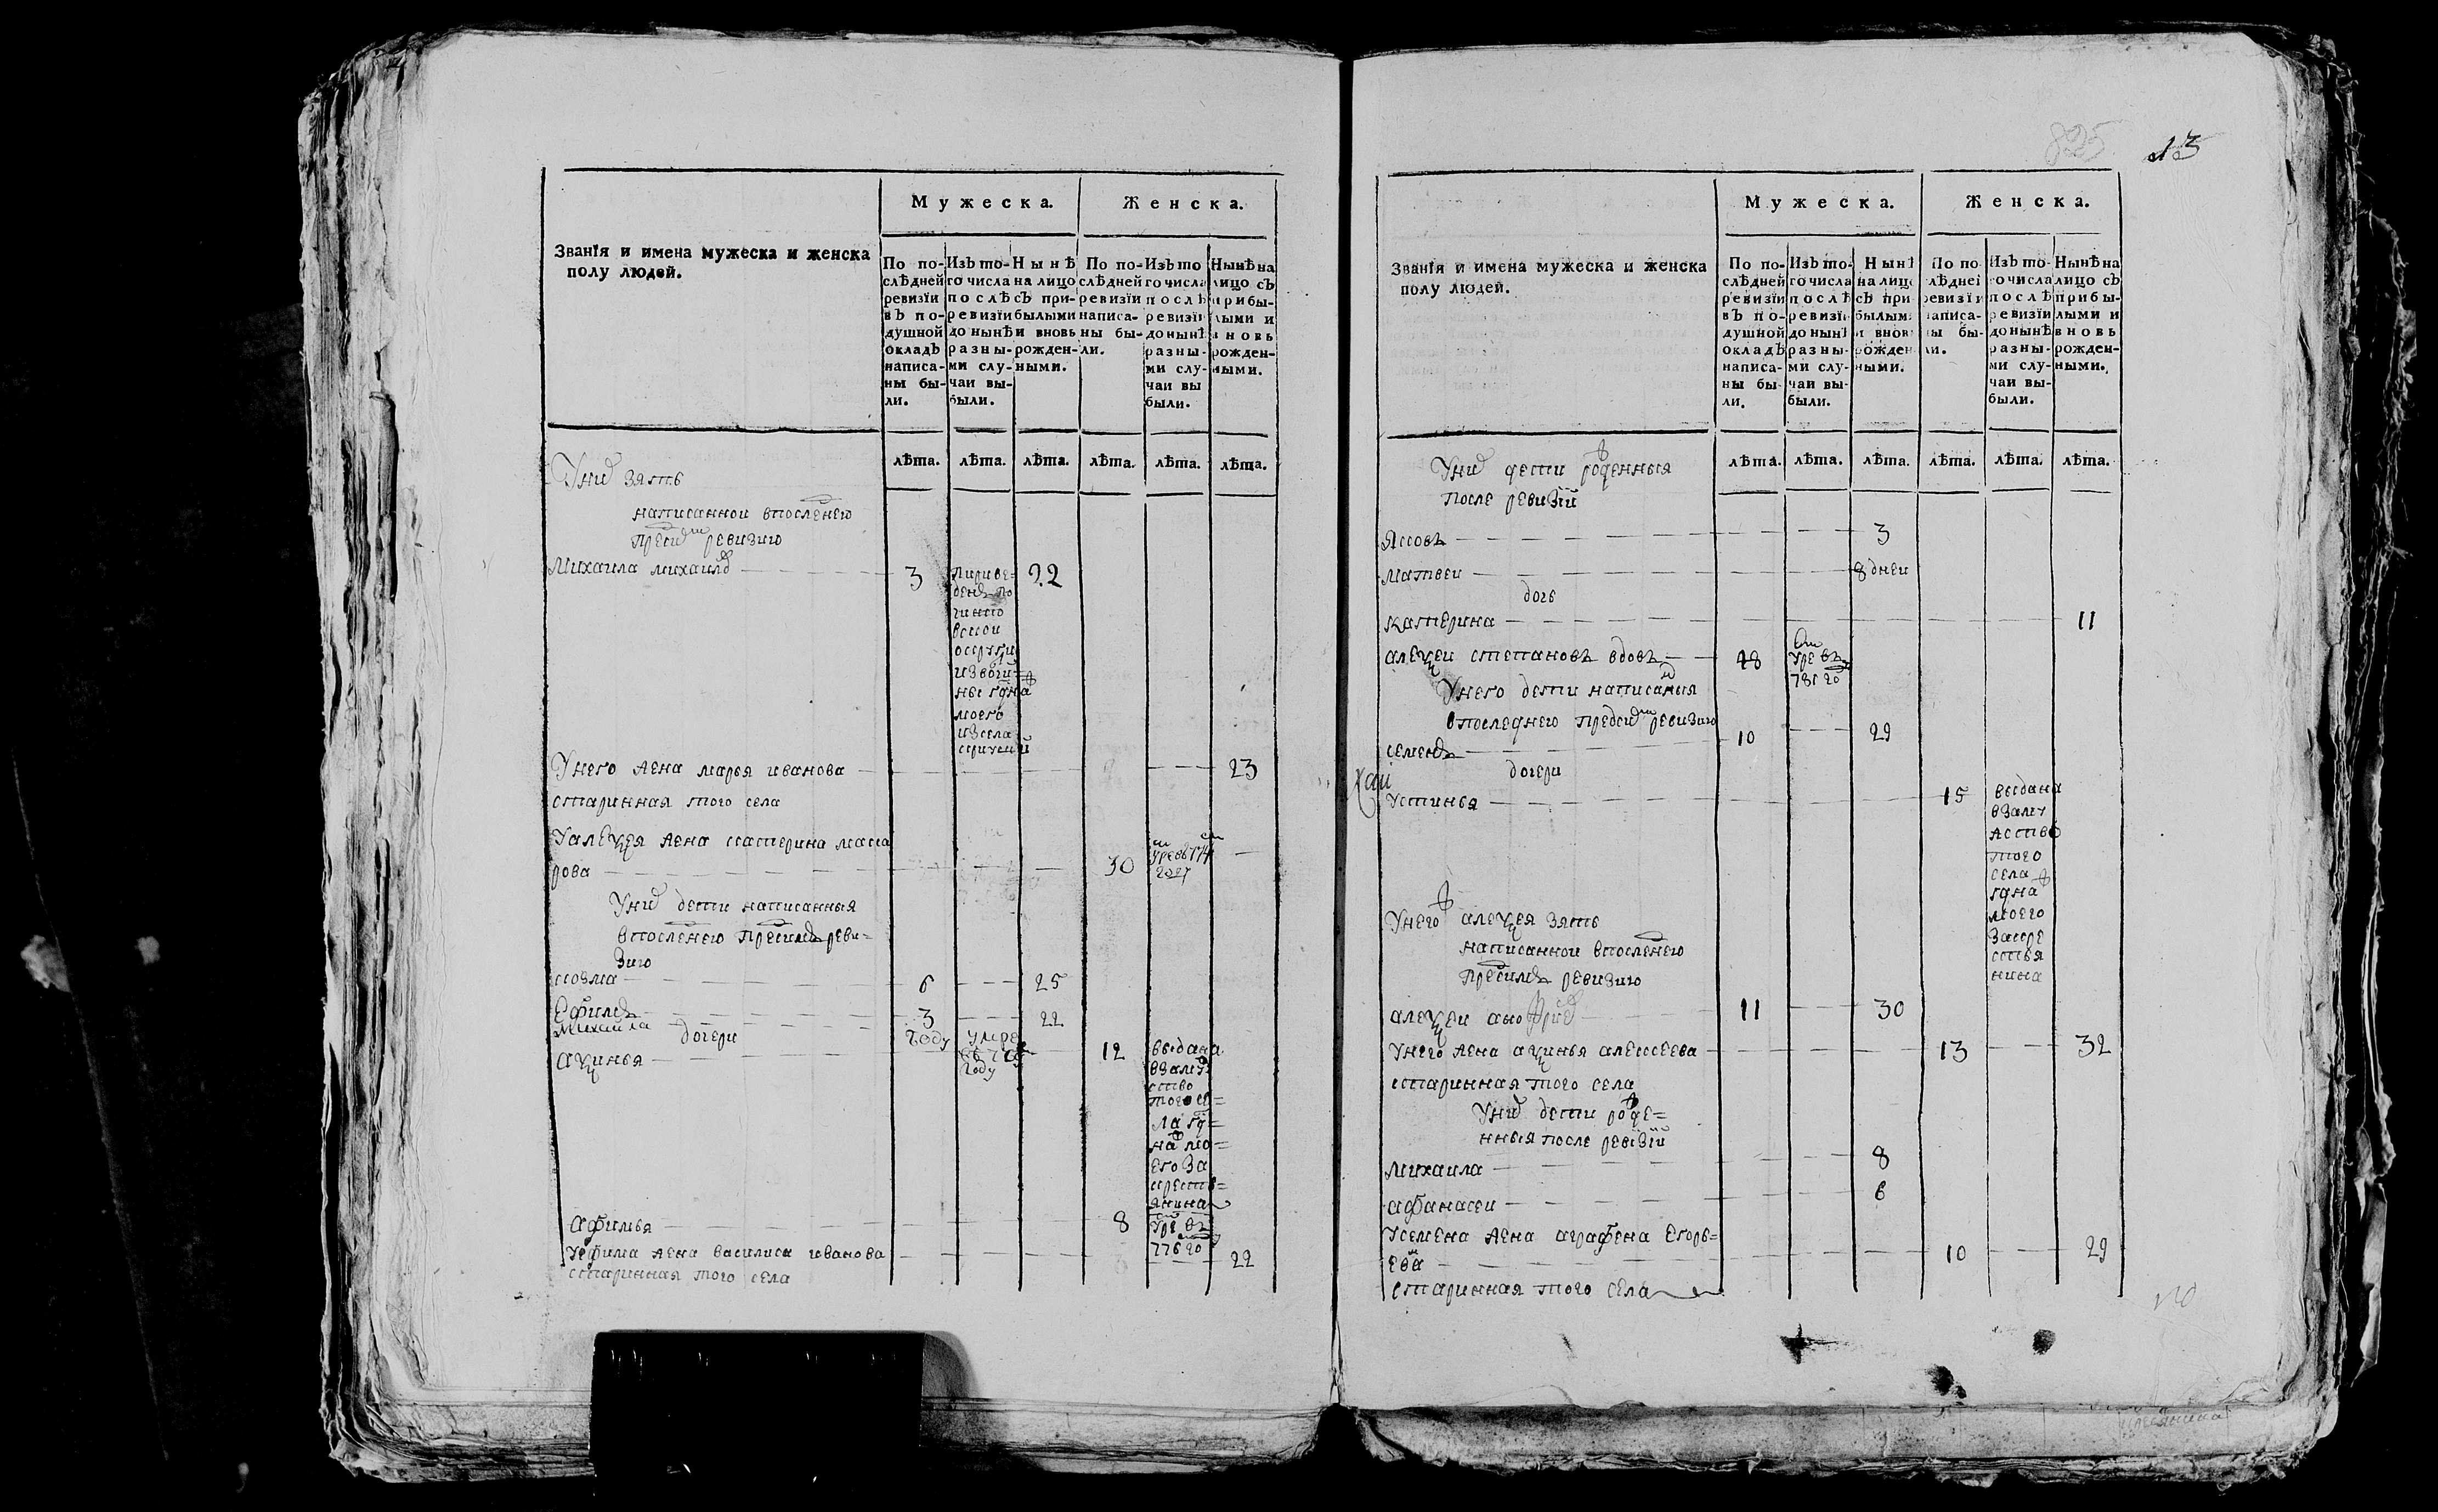 Мужеска.
Женска.
Званїя и имена мужеска и женска
полу людей.
По по-
слѣдней
ревизїи
въ по-
душной
окладъ
написа-
ны бы-
ли.
Изъ то-
го числа
послѣ
ревизїи
до нынѣ
разны-
ми слу-
чаи вы-
были.
Нынѣ
на лицо
съ при-
былыми
и вновь
рожден-
ными.
По по-
слѣдней
ревизїи
написа-
ны бы-
ли.
Изъ то
го числа
послѣ
ревизїи
до нынѣ
разны-
ми слу-
чаи вы
были.
Нынѣ на
лицо съ
прибы-
лыми и
вновь
рожден-
ными.
лѣта. лѣта. лѣта. лѣта. лѣта. лѣта.
У них зять
написанной впоследнею
ревизию
Михаила михаилов 3 22
моего
из села
У него жена марья иванова 23
старинная того села
У алексея жена катерина мака
рова 30
У них дети написанныя
впоследнею пред сим реви=
зию
козма 6 25
Ефимъ 3 22
Михаила году умре
дочери
аксинья 12 выдана
взаму
ство
того се=
ла
мо=
его за
крестья=
янина
афимья 8 умре
776 го
У ефима жена василиса иванова 22
старинная того села
825 13
Мужеска.
Женска.
Званїя и имена мужеска и женска
полу людей.
По по-
слѣдней
ревизїи
въ по-
душной
окладѣ
написа-
ны бы-
ли.
Изъ то-
го числа
послѣ
ревизїи
до нынѣ
разны-
ми слу-
чаи вы-
были.
Нынѣ
на лицо
съ при-
былыми
и вновь
рожден
ными.
По по
слѣдней
ревизїи
написа-
ны бы-
ли.
Изъ то-
го числа
послѣ
ревизїи
до нынѣ
разны-
ми слу-
чаи вы-
были.
Нынѣ на
лицо съ
прибы-
лыми и
вновь
рожден-
ными.
лѣта. лѣта. лѣта. лѣта. лѣта. лѣта.
У них дети рожденныя
после ревизїй
Яковъ 3
матвеи 8 дней
дочь
катерина 11
алексеи степановъ вдовъ 48 умре въ
781 го
У него дети написаныя
впоследнею пред сим ревизию
семенъ 10 29
дочери
устинья 15 выдана
взаму
жство
того
села
гдна
моего
за кре
стья
нина
У него алексея зять
написанной впоследнею
пред симъ ревизию
алексеи 11 30
У него жена аксинья алексеева 13 32
старинная того села
У них дети рожде=
нныя после ревизїй
михаила 8
афанасеи 6
У семена жена аграфена Егорь=
ева 10 29
старинная того села